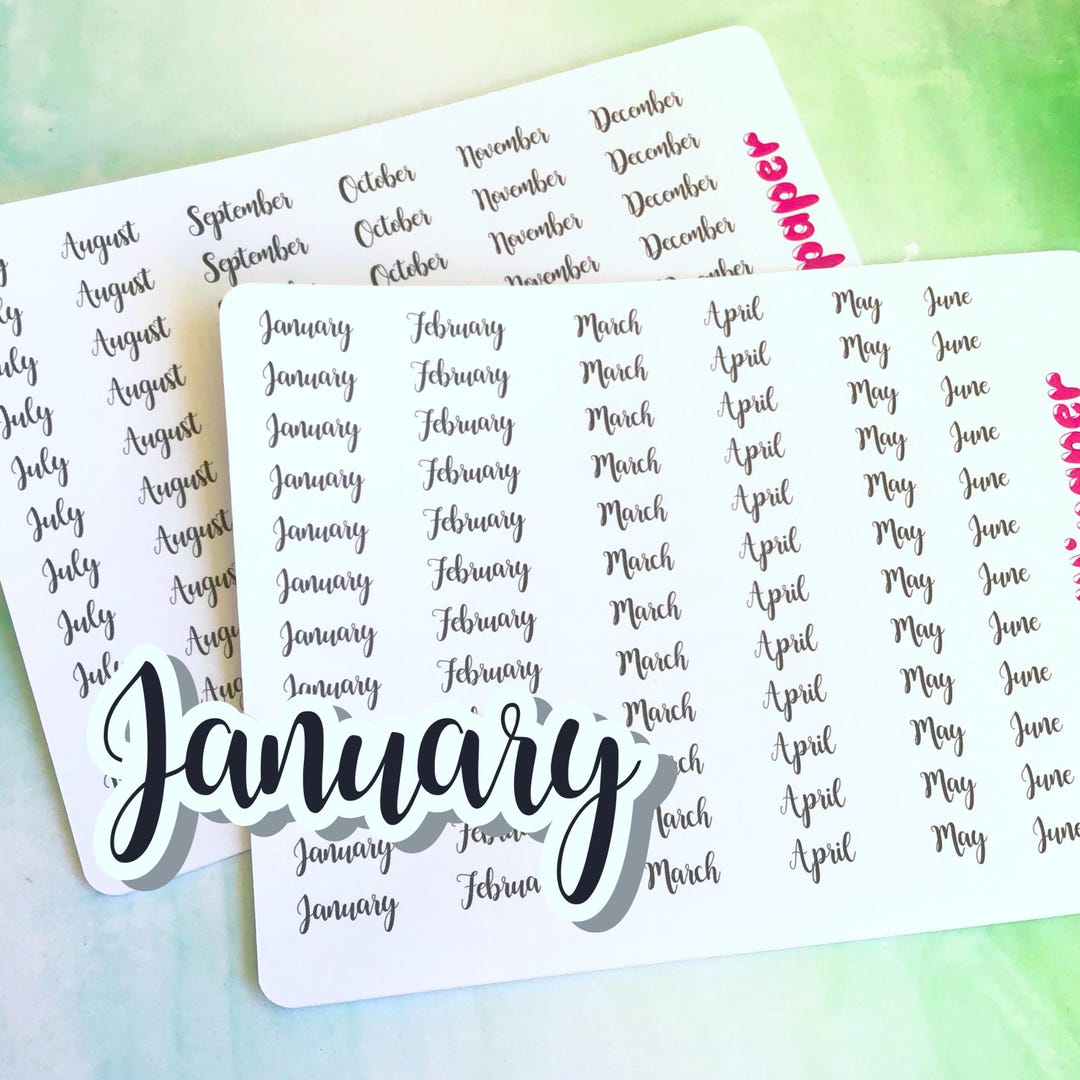 August September October November December
August September October November December
August October November December
July August November December
July August
July August
July August
July August
July
January February March April May June
January February March April May June
January February March April May June
January February March April May June
January February March April May June
January February March April May June
January February March April May June
January February March April May June
March April May June
April May June
January March April May June
January Februa March April May June
January